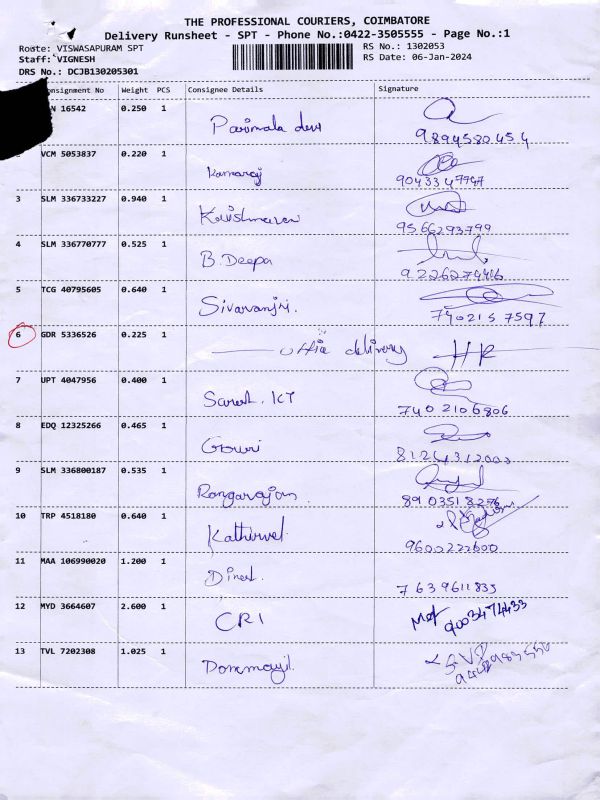 THE PROFESSIONAL COURIERS, COIMBATORE
Delivery Runsheet - SPT - Phone No.:0422-3505555 - Page No.:1
Route: VISWASAPURAM SPT RS No.: 1302053
Staff: VIGNESH RS Date: 06-Jan-2024
DRS No.: DCJB130205301
onsignment No Weight PCS Consignee Details Signature
16542 0.250 1 Parimala devi
9894580454
VCM 5053837 0.220 1 Kamaraj
9043347747
3 SLM 336733227 0.940 1
9566293799
4 SLM 336770777 0.525 1 B. Deepa
9226274416
5 TCG 40795605 0.640 1 Sivaranjri.
7402157597
6 GDR 5336526 0.225 1 office delivery HR
7 UPT 4047956 0.400 1 KT
7402106806
8 EDQ 12325266 0.465 1 Gowri
8124312003
9 SLM 336800187 0.535 1 Rangarajan
8903518276
10 TRP 4518180 0.640 1 Kathirvel
9600222600
11 MAA 106990020 1.200 1 Dinesh
7639611833
12 MYD 3664607 2.600 1 CRI
9003474433
13 TVL 7202308 1.025 1